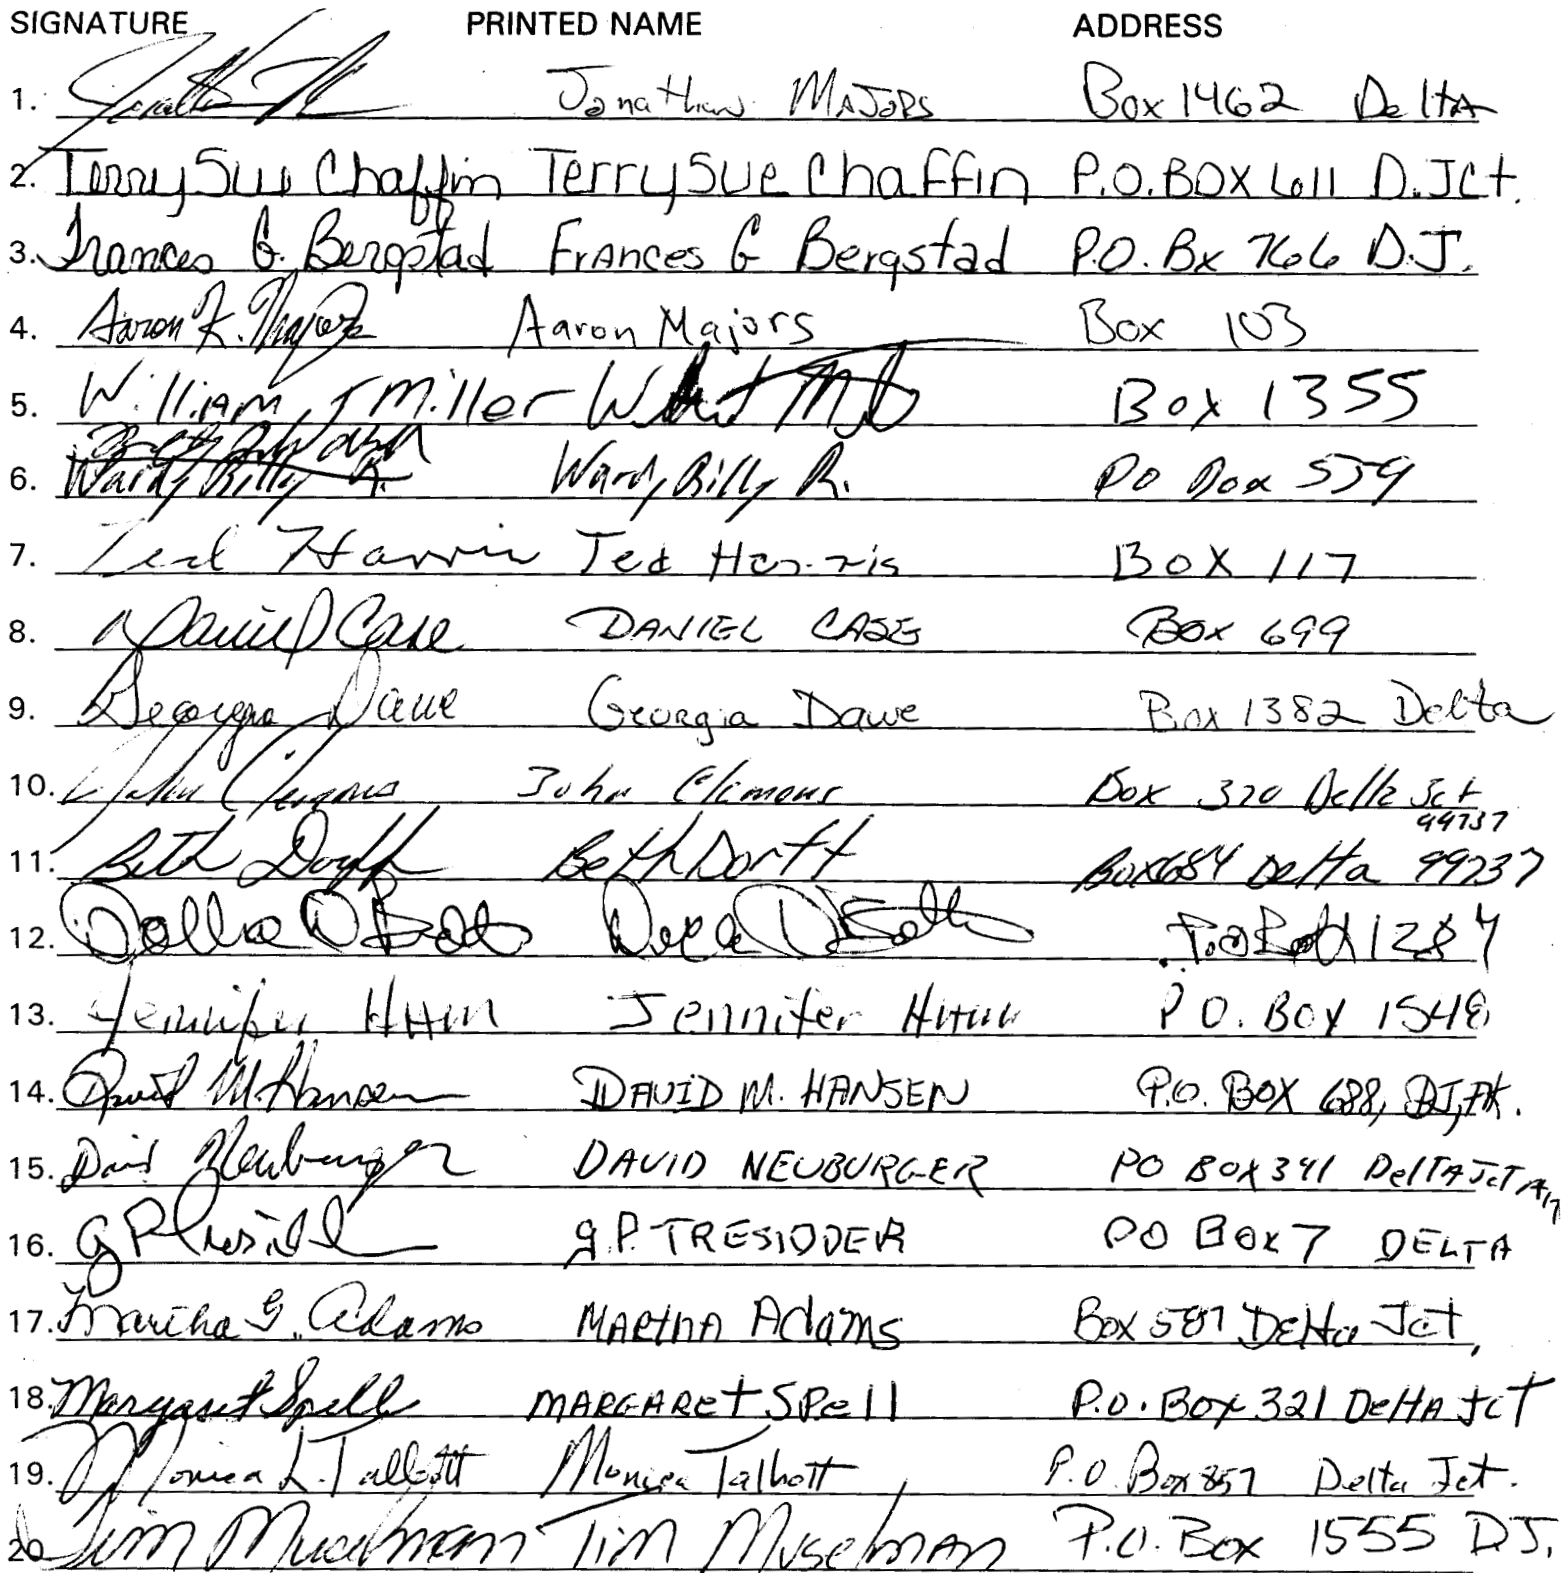 SIGNATURE PRINTED NAME ADDRESS
1. Jonathan Majors Box 1462 Delta
2. Terry Sue Chaffin Terry Sue Chaffin P.O. BOX 611 D. JCt.
3. Frances G. Bergstad Frances G Bergstad P.O. Bx 766 D.J.
4. Aaron K. Majors Aaron Majors Box 103
5. William J Miller Box 1355
6. Ward, Billy R. Ward, Billy R. PO Box 559
7. Ted Harris Ted Harris Box 117
8. Daniel Case DANIEL CASE Box 699
9. Georgia Dawe Georgia Dawe Box 1382 Delta
10. John Clemons John Clemons Box 320 Delta Jct
99737
11. Beth Dorff Beth Dorff Box 684 Delta 99737
12. 1287
13. Jennifer Jennifer P.O. Box 1548
14. David M Hansen DAVID M. HANSEN P.O. BOX 688, DJ, AK.
15. David Neuburger DAVID NEUBURGER PO BOX 341 Delta Jct
16. G P Tresidder G.P. TRESIDDER PO Box 7 DELTA
17. Martha G. Adams MARTHA Adams Box 587 Delta Jct,
18. Margaret Spell MARGARET Spell P.O. Box 321 Delta Jct
19. Monica L. Talbott Monica Talbott P.O. Box 857 Delta Jct.
20 Tim Muselman Tim Muselman P.O. Box 1555 D.J.